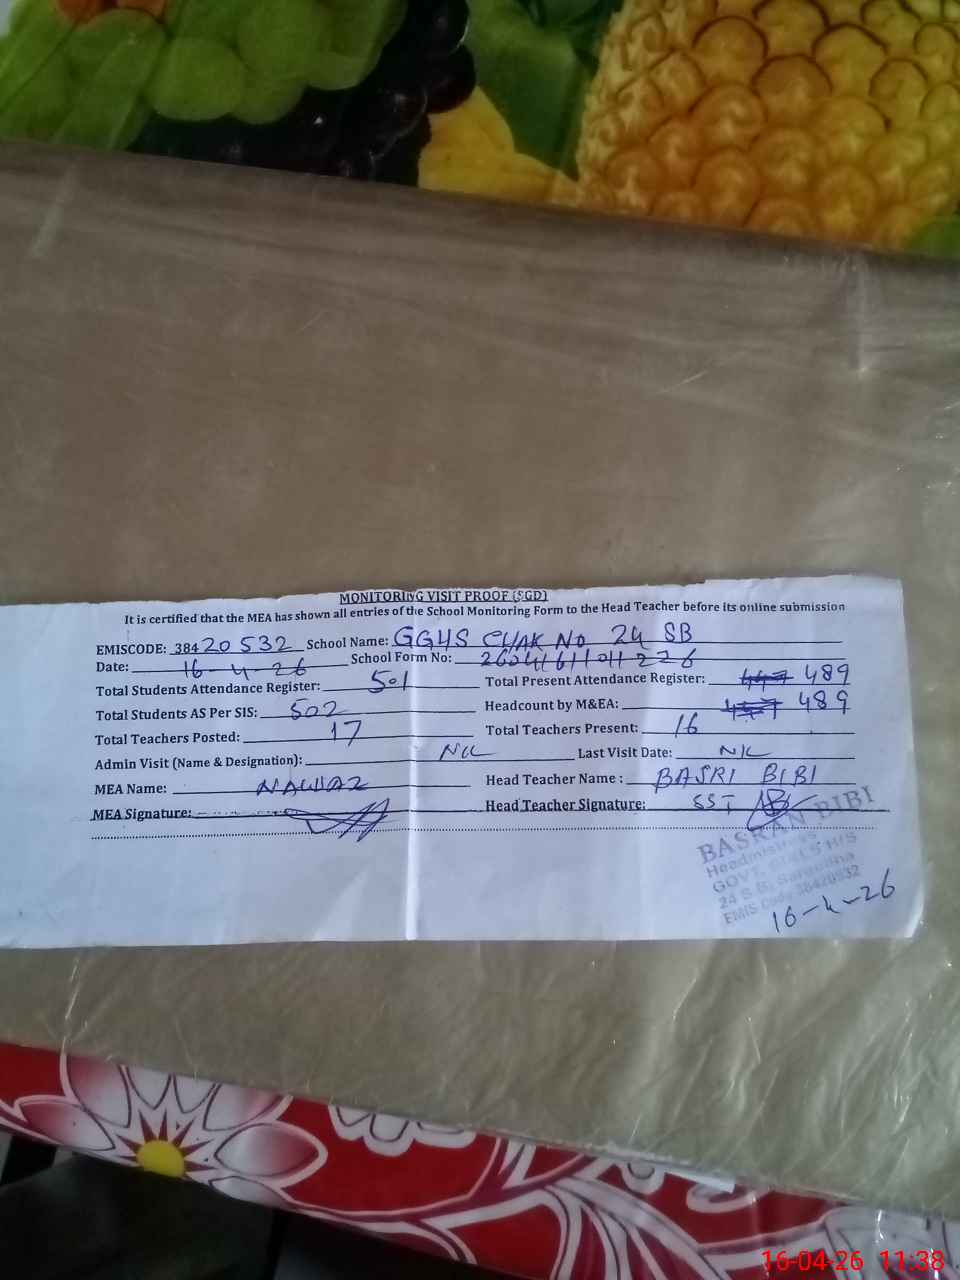 MONITORING VISIT PROOF (SGD)
It is certified that the MEA has shown all entries of the School Monitoring Form to the Head Teacher before its online submission
EMISCODE: 38420532 School Name: GGHS CHAK NO 24 SB
Date: 16-4-26 School Form No:
Total Students Attendance Register: 501 Total Present Attendance Register: 489
Total Students AS Per SIS: 502 Headcount by M&EA: 489
Total Teachers Posted: 17 Total Teachers Present: 16
Admin Visit (Name & Designation): NIL Last Visit Date: NIL
MEA Name: NAWAZ Head Teacher Name : BASRI BIBI
MEA Signature: Head Teacher Signature: SST
BASRAN BIBI
Headmistress
GOVT. GIRLS H/S
24 S.B. Sargodha
EMIS Code 38420532
16-4-26
16-04-26 11:38